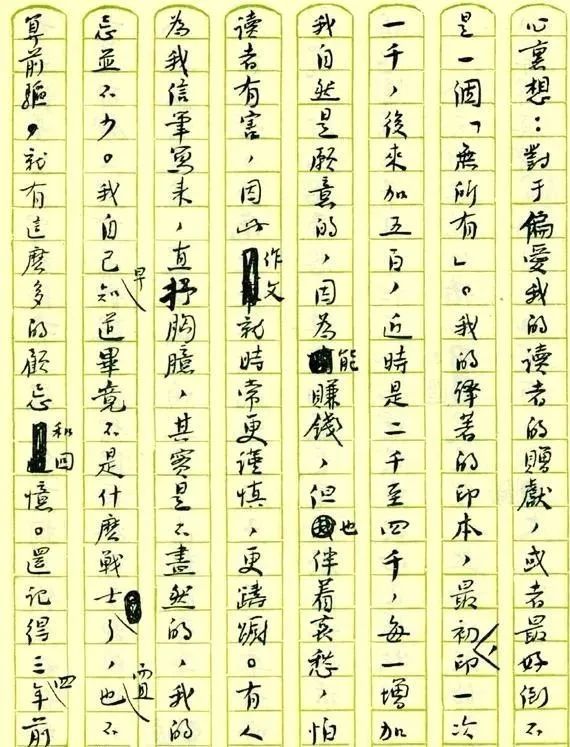 心裏想：對于偏愛我的讀者的贈獻，或者最好倒不
是一個「無所有」。我的譯著的印本，最初，印一次
一千，後來加五百，近時是二千至四千，每一增加
我自然是願意的，因為能賺錢，但也伴着哀愁，怕
讀者有害，因此作文就時常更謹慎，更躊躇。有人
為我信筆寫來，直抒胸臆，其實是不盡然的，我的
忌並不少。我自己早知道畢竟不是什麼戰士了，也不
算前驅，就有這麼多的顧忌和回憶。還記得三四年前